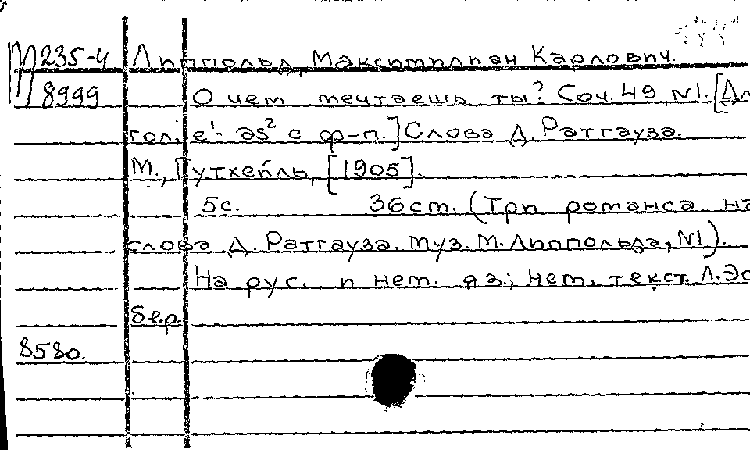 П235-4 Липпольд, Максимилиан Карлович.
8999 О чем мечтаешь ты? Соч. 49 №1. [Дл
гол. e¹- as² с ф-п.] Слова Д. Ратгауза.
М., Гутхейль, [1905].
5с. 36см. (Три романса на
слова Д. Ратгауза. Муз. М. Липпольда, №1).
На рус. и нем. яз.; нем. текст Л. Эс
бер.
8580.